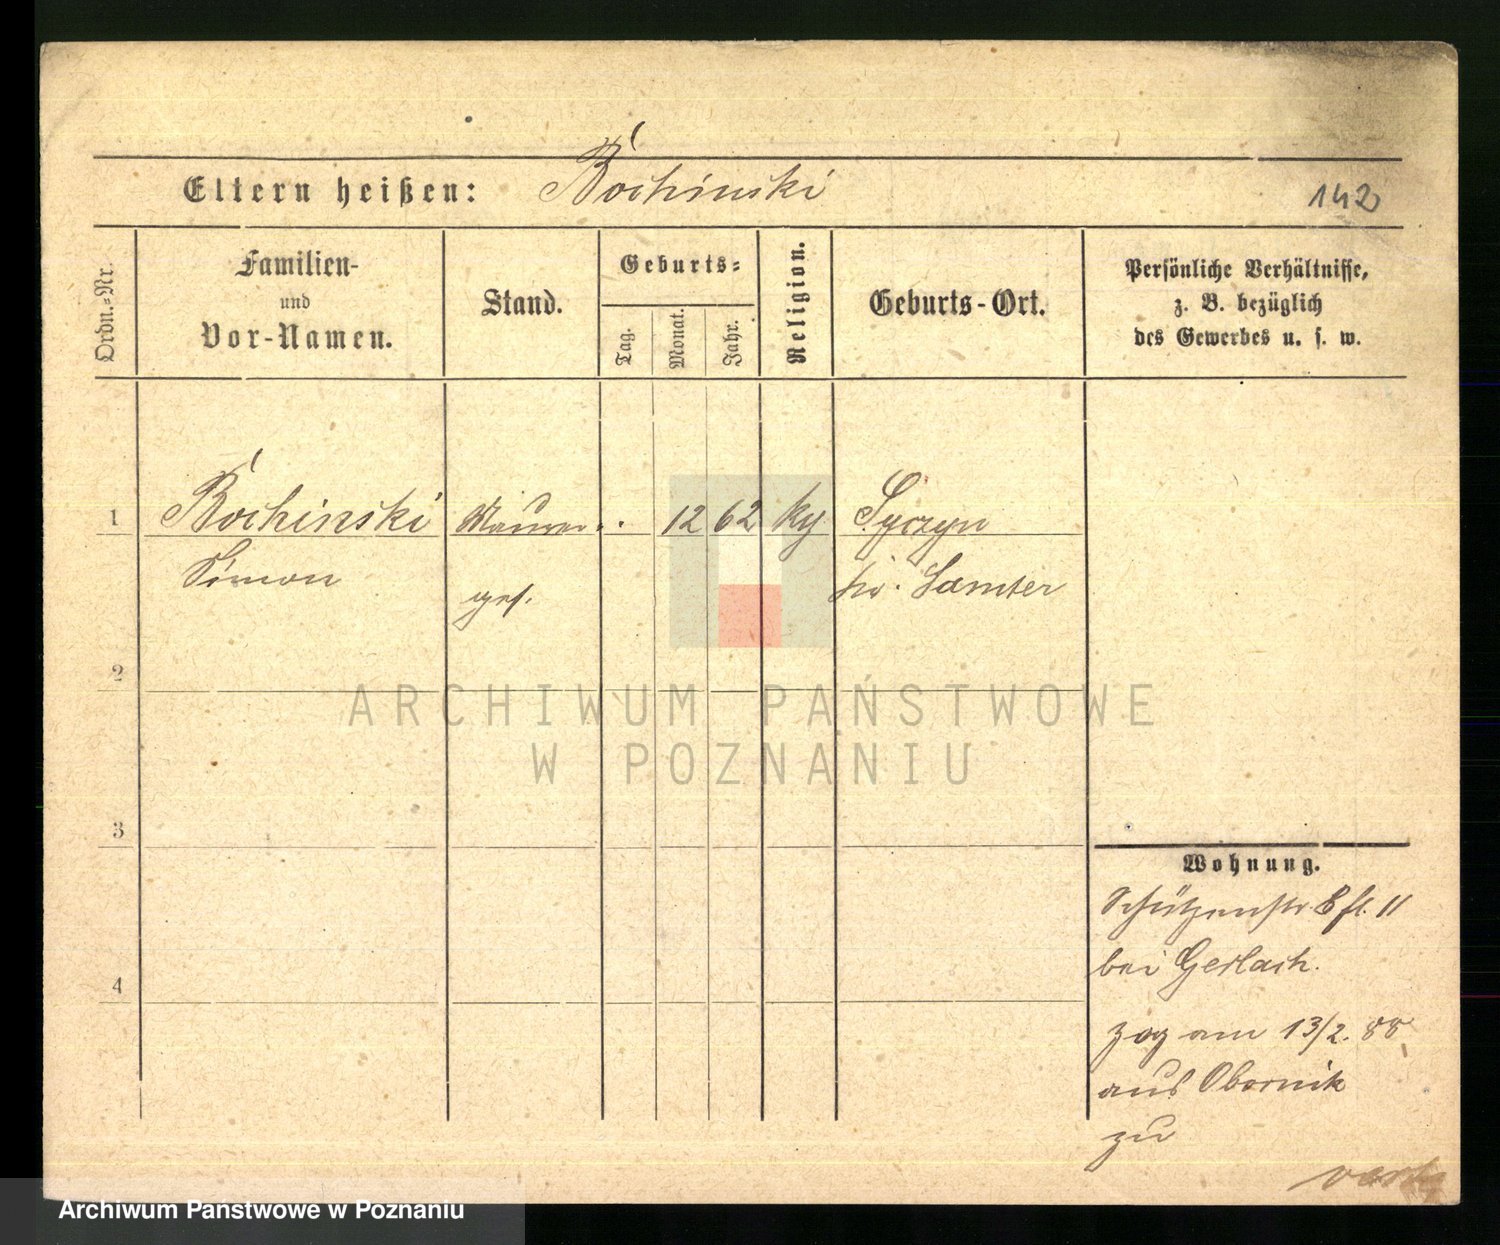 Eltern heißen: Bochinski
142
Ordn.-Nr.
Familien-
und
Vor-Namen.
Stand.
Geburts-
Tag.
Monat.
Jahr.
Religion.
Geburts-Ort.
Persönliche Verhältnisse,
z. B. bezüglich
des Gewerbes u. s. w.
1 Bochinski Maurer 12 62 Syczyn
Simon ges. Kr. Samter
2
3
4
Wohnung.
Schützenstr 11
bei Gerlach.
zog am 13/2. 88
aus Obornik
zu
ARCHIWUM PAŃSTWOWE
W POZNANIU
Archiwum Państwowe w Poznaniu